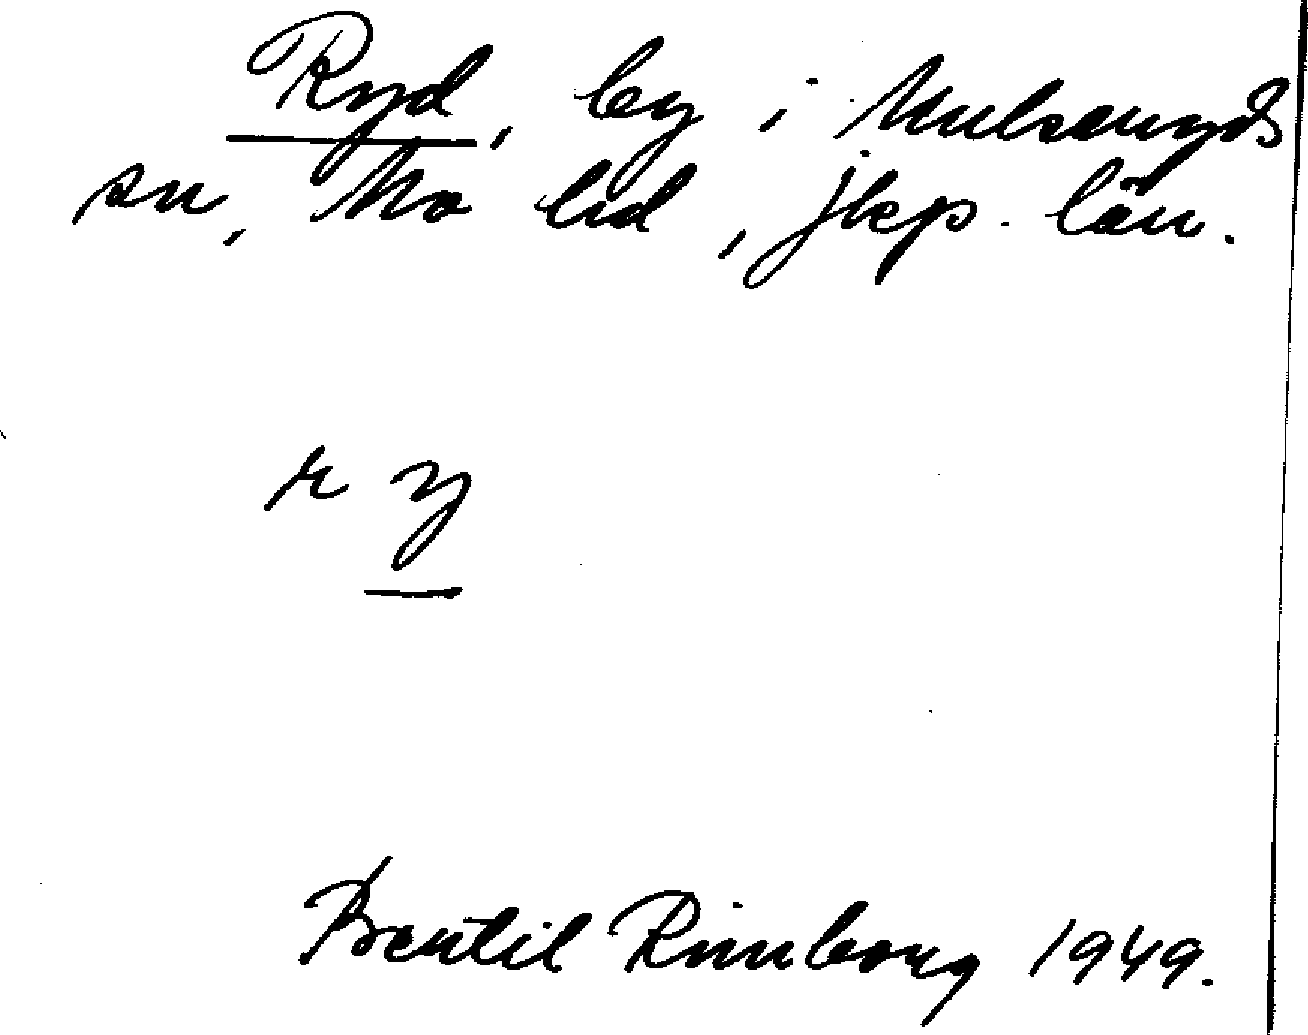 Ryd, by i Mulseryds
sn, Mo hd, Jkp. län.
ry
Bertil Rimborg 1949.